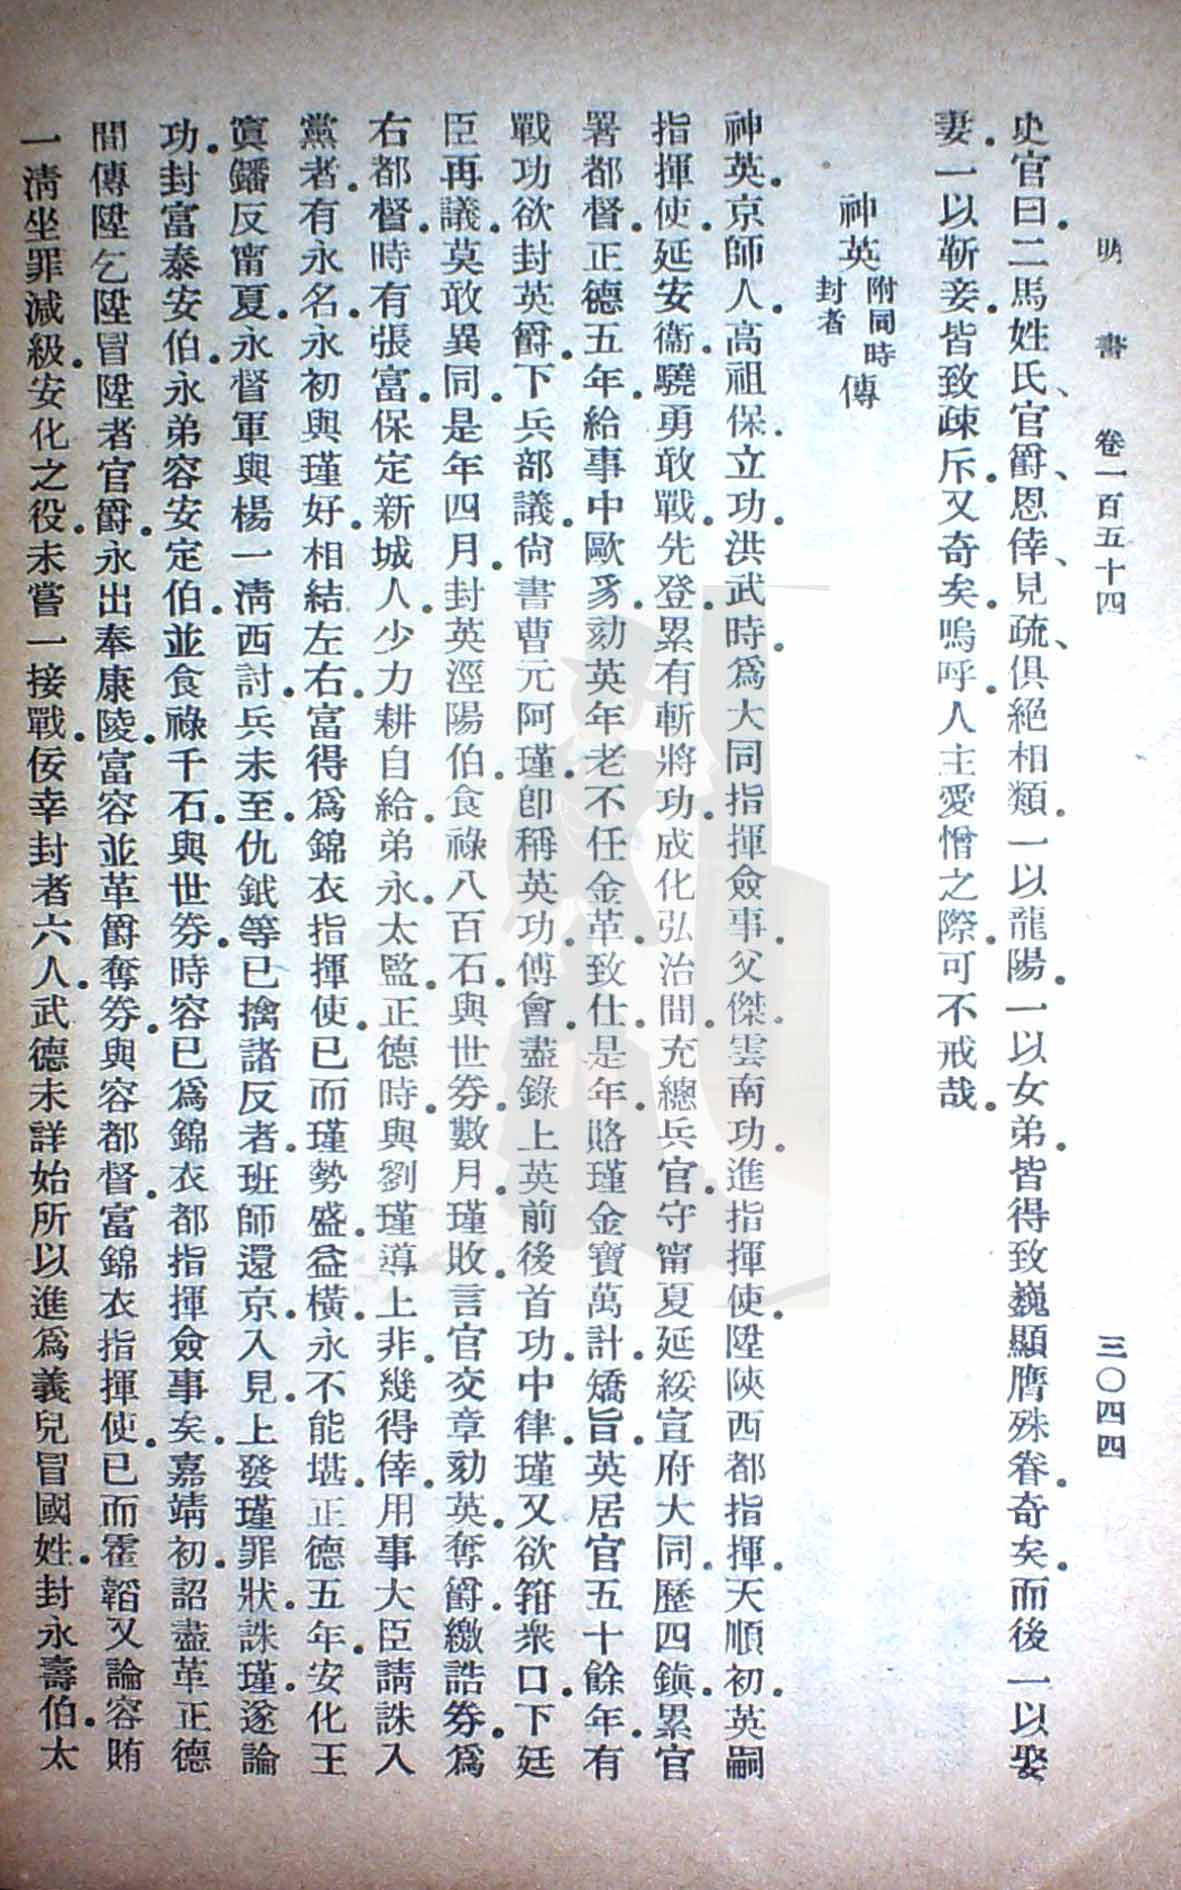 明書 卷一百五十四 三〇四四
史官曰.二馬姓氏、官爵、恩倖、見疏、俱絕相類.一以龍陽.一以女弟.皆得致巍顯膺殊眷.奇矣.而後一以娶
妻.一以靳妾.皆致疎斥.又奇矣.嗚呼.人主愛憎之際.可不戒哉.
神英附同時封者傳
神英.京師人.高祖保.立功.洪武時.爲大同指揮僉事.父傑.雲南功.進指揮使.陞陝西都指揮.天順初.英嗣
指揮使.延安衞.驍勇敢戰.先登.累有斬將功.成化弘治間.充總兵官.守甯夏延綏宣府大同.歷四鎮.累官
署都督.正德五年.給事中歐豸.劾英年老.不任金革.致仕.是年.賂瑾金寶萬計.矯旨.英居官五十餘年.有
戰功.欲封英爵.下兵部議.尙書曹元阿瑾.卽稱英功.傅會.盡錄上英前後首功.中律.瑾又欲箝衆口.下廷
臣再議.莫敢異同.是年四月.封英涇陽伯.食祿八百石.與世券.數月.瑾敗.言官交章劾英.奪爵.繳誥券.爲
右都督.時有張富.保定新城人.少力耕自給.弟永.太監.正德時.與劉瑾導上非.幾得倖.用事大臣請誅入
黨者.有永名.永初與瑾好.相結左右.富得爲錦衣指揮使.已而瑾勢盛益橫.永不能堪.正德五年.安化王
寘鐇反甯夏.永督軍與楊一淸西討.兵未至.仇鉞等已擒諸反者.班師還京.入見.上發瑾罪狀.誅瑾.遂論
功.封富泰安伯.永弟容安定伯.並食祿千石.與世券.時容已爲錦衣都指揮僉事矣.嘉靖初.詔盡革正德
間傳陞乞陞冒陞者官爵.永出奉康陵.富容並革爵奪券.與容都督.富錦衣指揮使.已而霍韜又論容賄
一淸坐罪減級.安化之役.未嘗一接戰.佞幸封者六人.武德未詳始所以進.爲義兒.冒國姓.封永壽伯.太